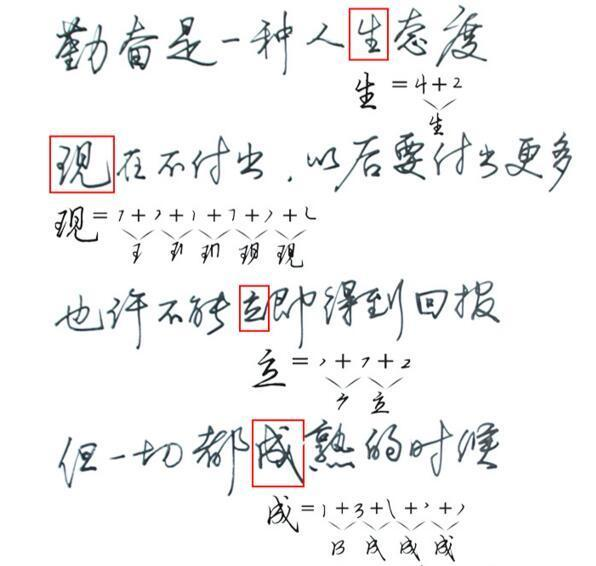 勤奋是一种人生态度
生=4+2
生
现在不付出,以后要付出更多
现=7+
王 现
也许不能立即得到回报
立=
立
但一切都成熟的时候
成=1+3+
成 成